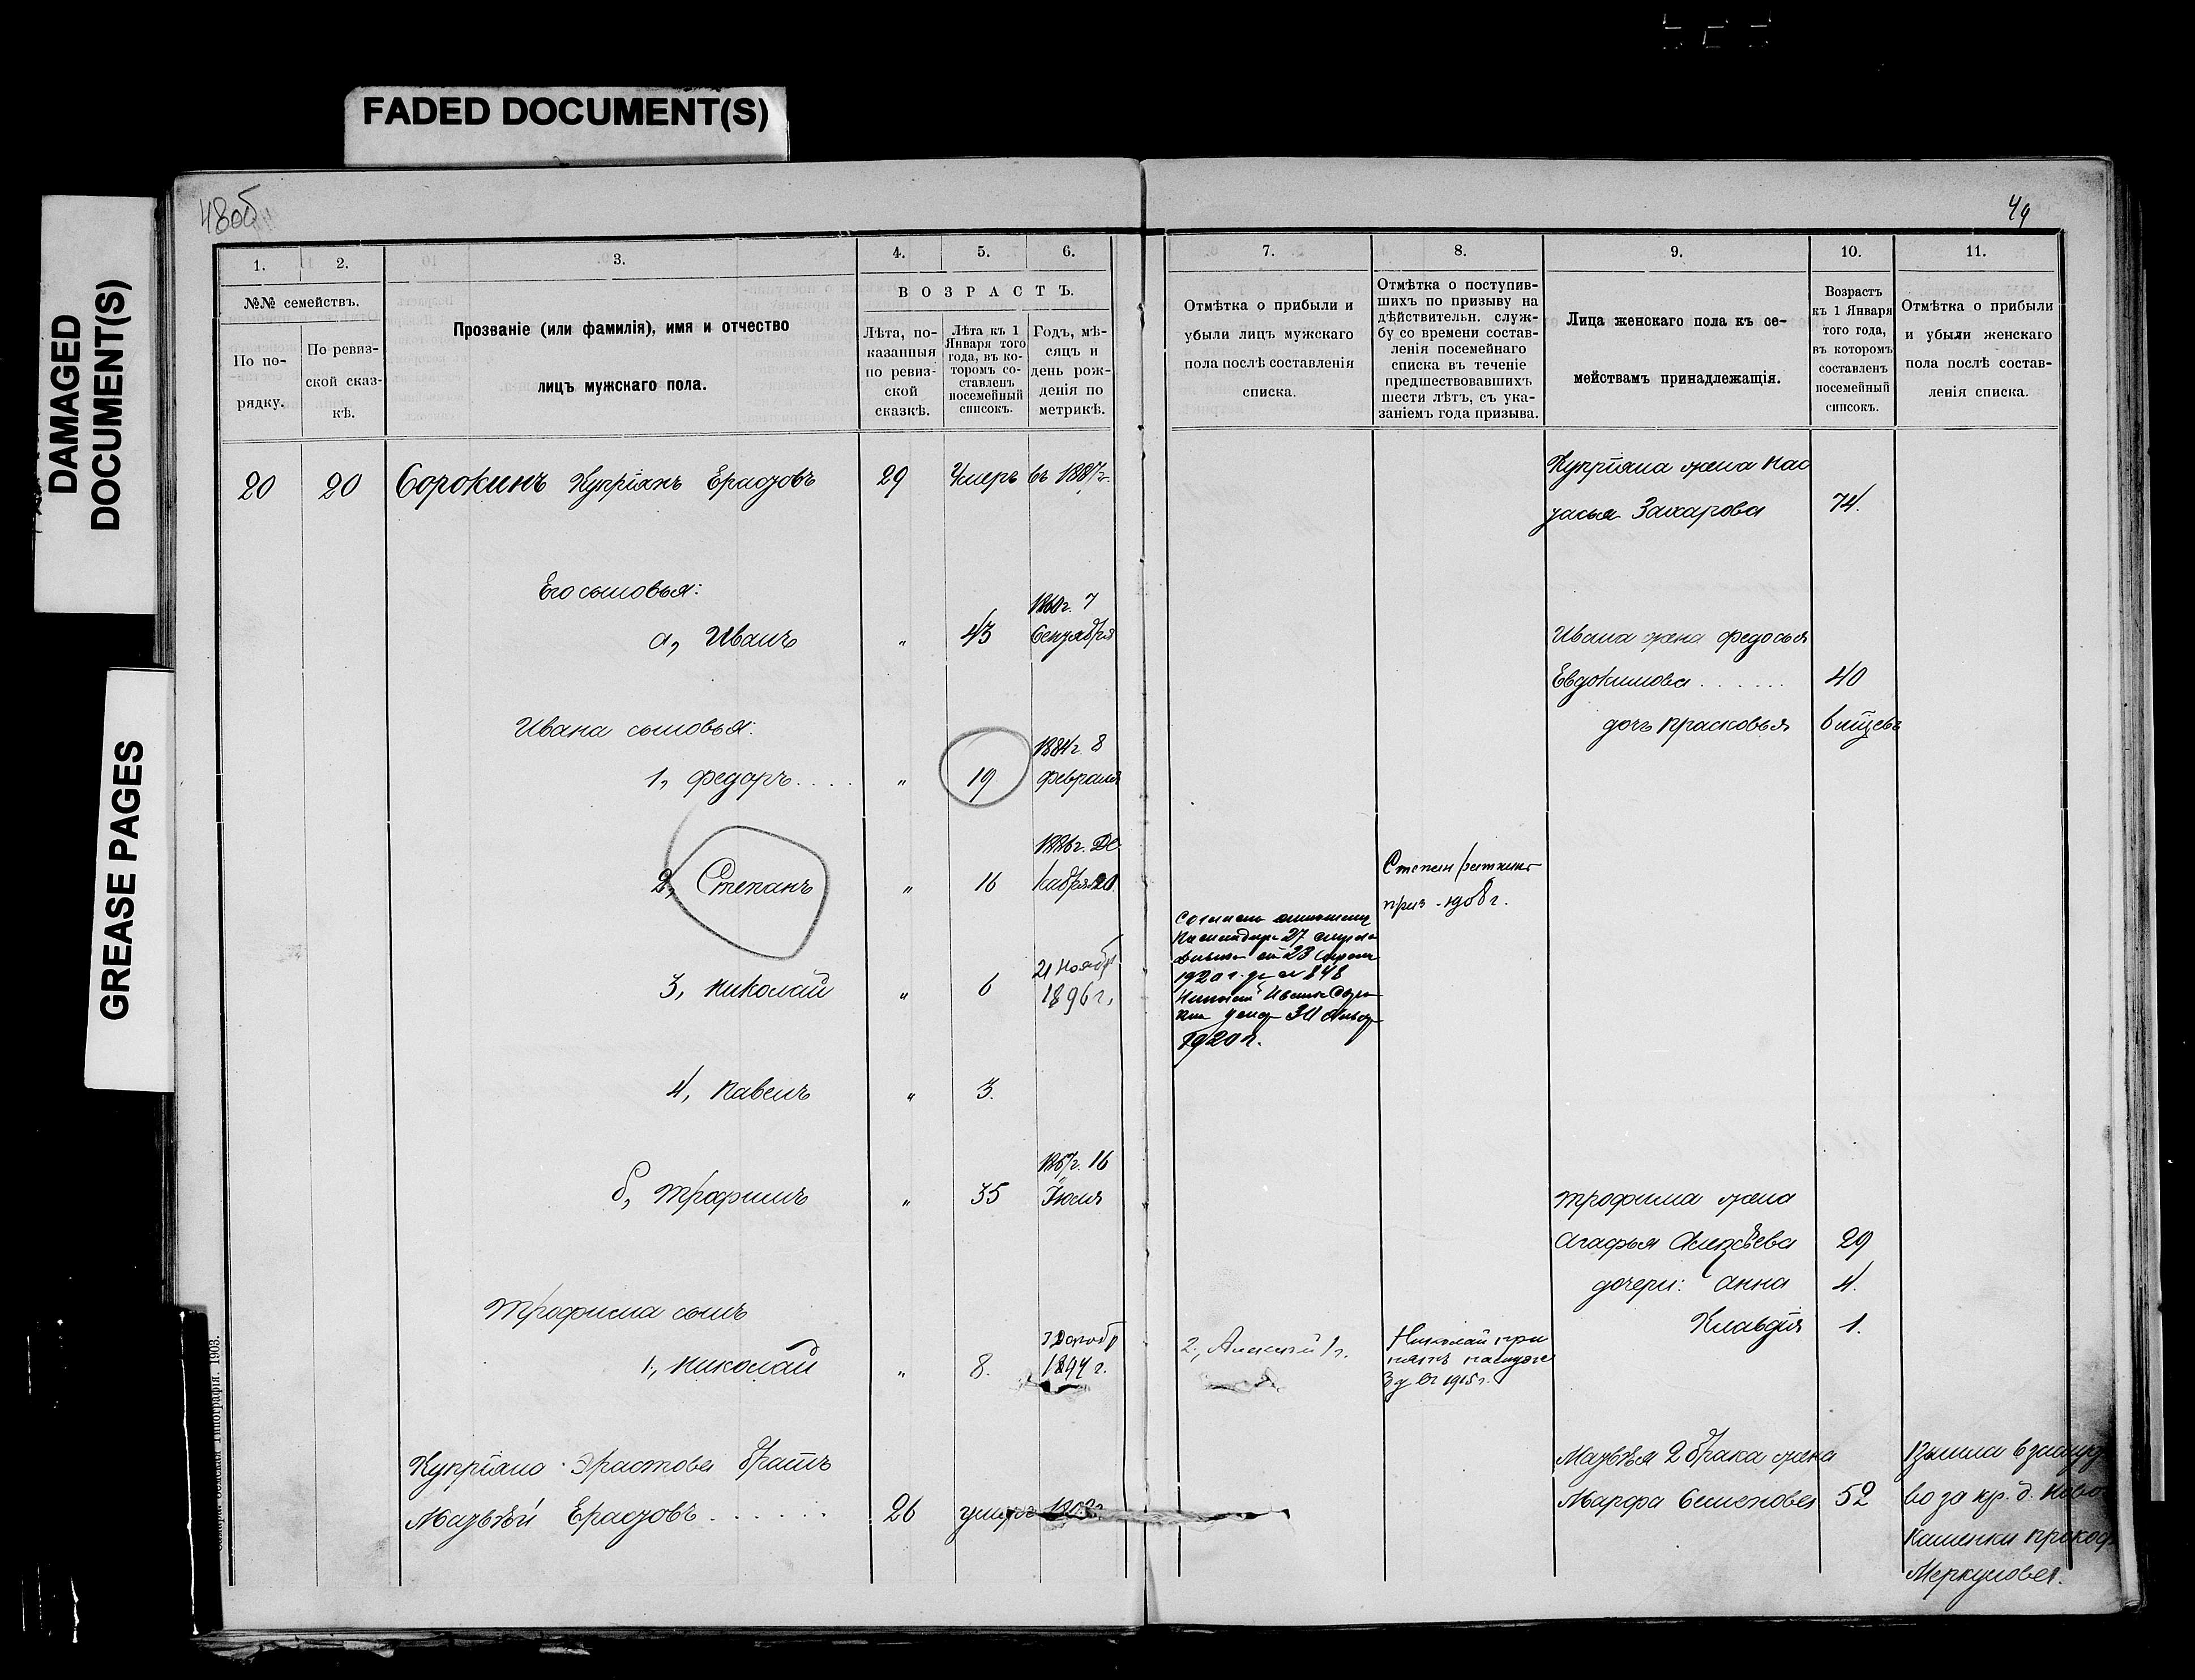 FADED DOCUMENT(S)
DAMAGED
DOCUMENT(S)
GREASE PAGES
48об
49
1.
2.
3.
4.
5.
6.
7.
8.
9.
10.
11.
№№ семействъ.
По по-
рядку.
По ревиз-
ской сказ-
кѣ.
Прозваніе (или фамилія), имя и отчество
лицъ мужскаго пола.
ВОЗРАСТЪ.
Лѣта, по-
казанныя
по ревиз-
ской
сказкѣ.
Лѣта къ 1
Января того
года, въ ко-
торомъ со-
ставленъ
посемейный
списокъ.
Годъ, мѣ-
сяцъ и
день рож-
денія по
метрикѣ.
Отмѣтка о прибыли и
убыли лицъ мужскаго
пола послѣ составленія
списка.
Отмѣтка о поступив-
шихъ по призыву на
дѣйствительн. служ-
бу со времени состав-
ленія посемейнаго
списка въ теченіе
предшествовавшихъ
шести лѣтъ, съ ука-
заніемъ года призыва.
Лица женскаго пола къ се-
мействамъ принадлежащія.
Возрастъ
къ 1 Января
того года,
въ которомъ
составленъ
посемейный
списокъ.
Отмѣтка о прибыли
и убыли женскаго
пола послѣ состав-
ленія списка.
20 20 Сорокинъ Купріянъ Ерастовъ 29 Умеръ въ 1887г.
Купріяна жена Нас
тасья Захарова 74.
Его сыновья:
а, Иванъ " 43 1860г. 7
Сентября
Ивана жена Федосья
Евдокимова . . . . . . 40
дочь Прасковья 6 мѣсяцевъ
Ивана сыновья:
1, Федоръ. . . . " 19 1884г. 8
Февраля
2, Степанъ " 16 1886г. Де
кабря 20
Степан
приз. 1908 г.
3, Николай " 6 21 Ноябр
1896 г.
27
23
1920 г. за № 848
Николай
1920 г.
4, Павелъ " 3.
б, Трофимъ " 35 1867г. 16
Іюля
Трофима жена
Агафья Алексѣева 29
дочери: Анна 4.
Клавдія 1.
Трофима сынъ
1, Николай " 8.
1894 г.
2, Алексей 1 г.
Николай при
нятъ на служ
въ 1915 г.
Купріяна Эрастова братъ
Матвѣй Ерастовъ . . . . . . 26 умеръ
Матвѣя 2 брака жена
Марфа Семенова 52
вышла в замуж
во за кр. д. Ново
каменки Прокоф
Меркулова.
Типографія. 1903.